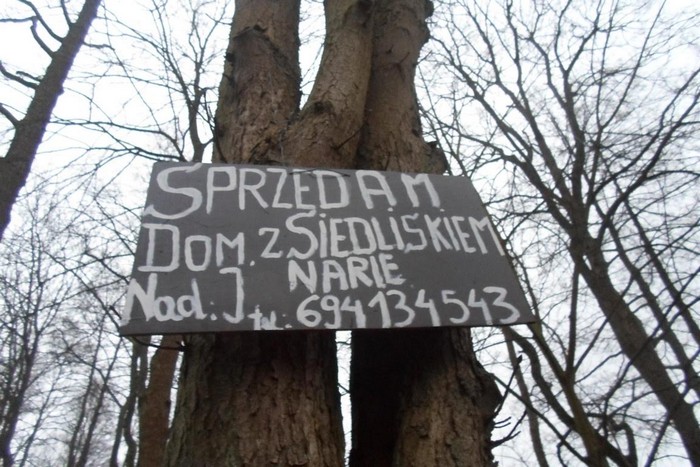 SPRZEDAM
DOM. Z SIEDLISKIEM
Nad. J NARIE
tel. 694134543